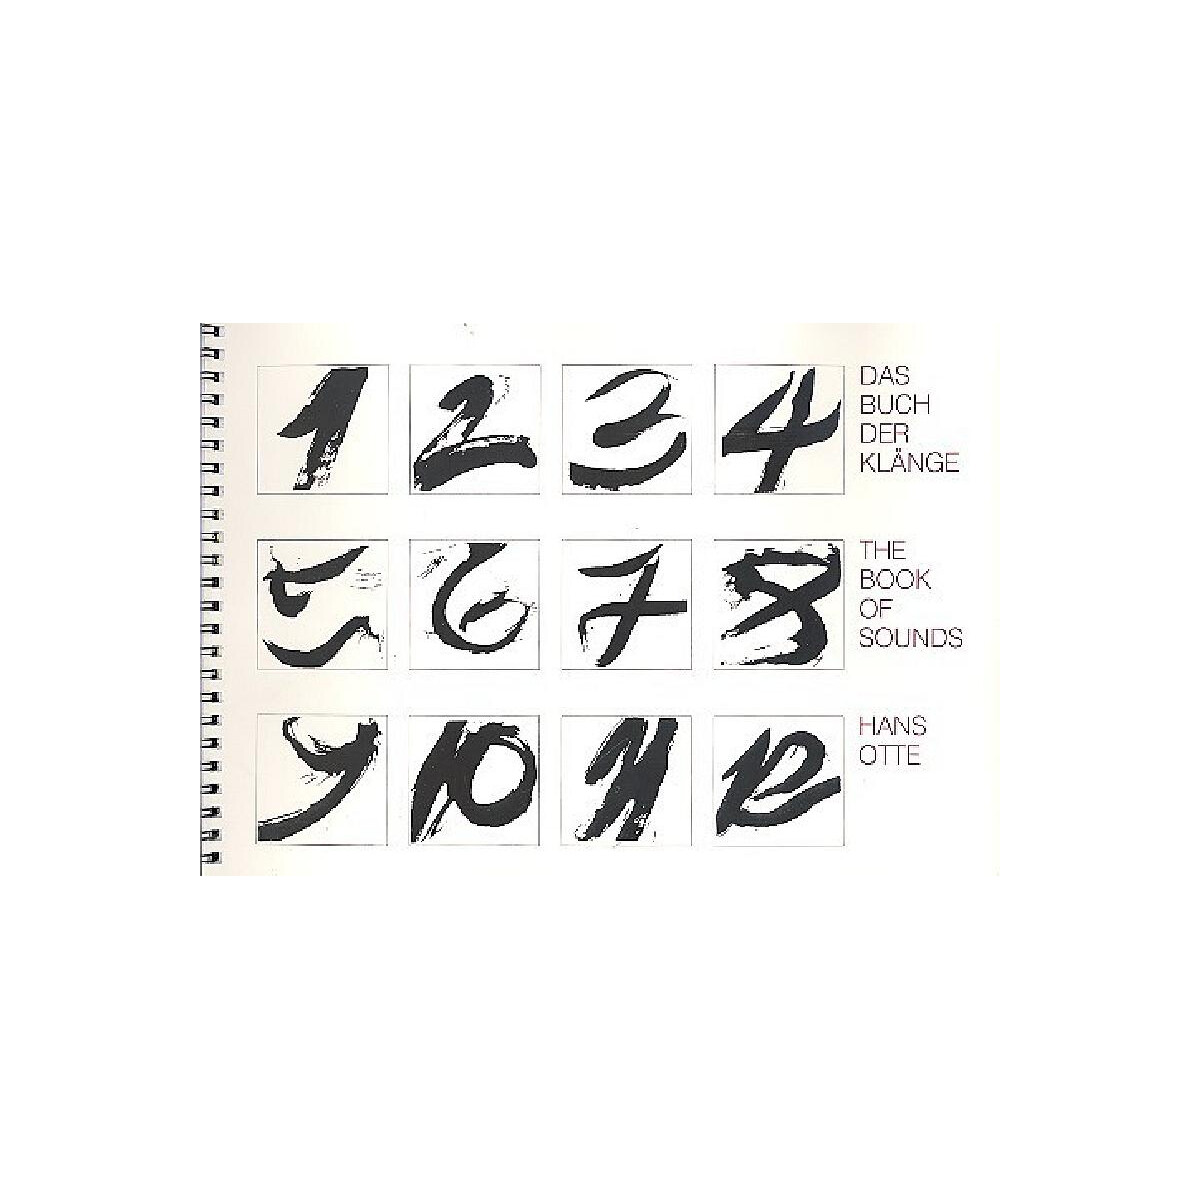 1 2 3 4
DAS
BUCH
DER
KLÄNGE
5 6 7 8
THE
BOOK
OF
SOUNDS
9 10 11 12
HANS
OTTE